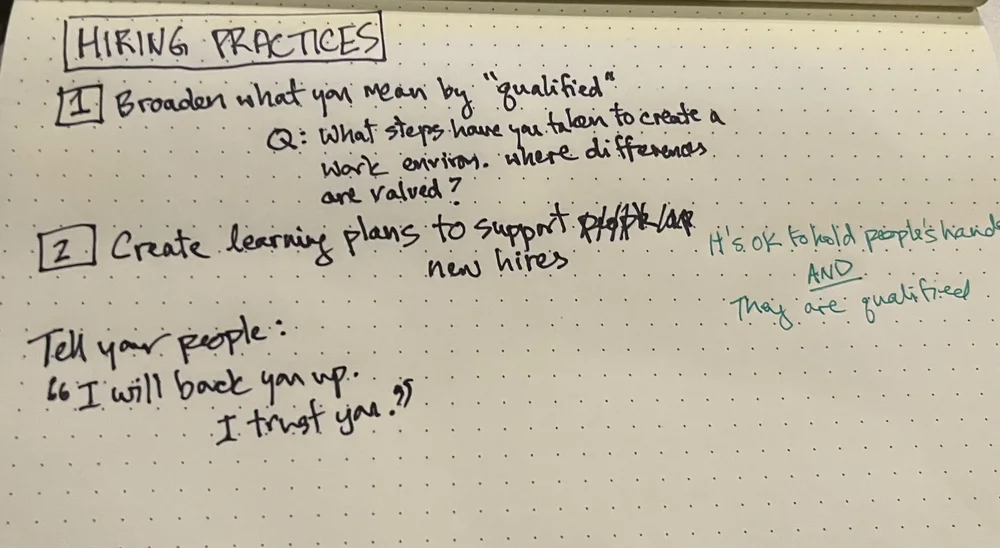 HIRING PRACTICES
1 Broaden what you mean by "qualified"
Q: What steps have you taken to create a
work environ. where differences
are valued?
2 Create learning plans to support
new hires
It's ok to hold people's hands
AND
They are qualified
Tell your people:
"I will back you up.
I trust you."